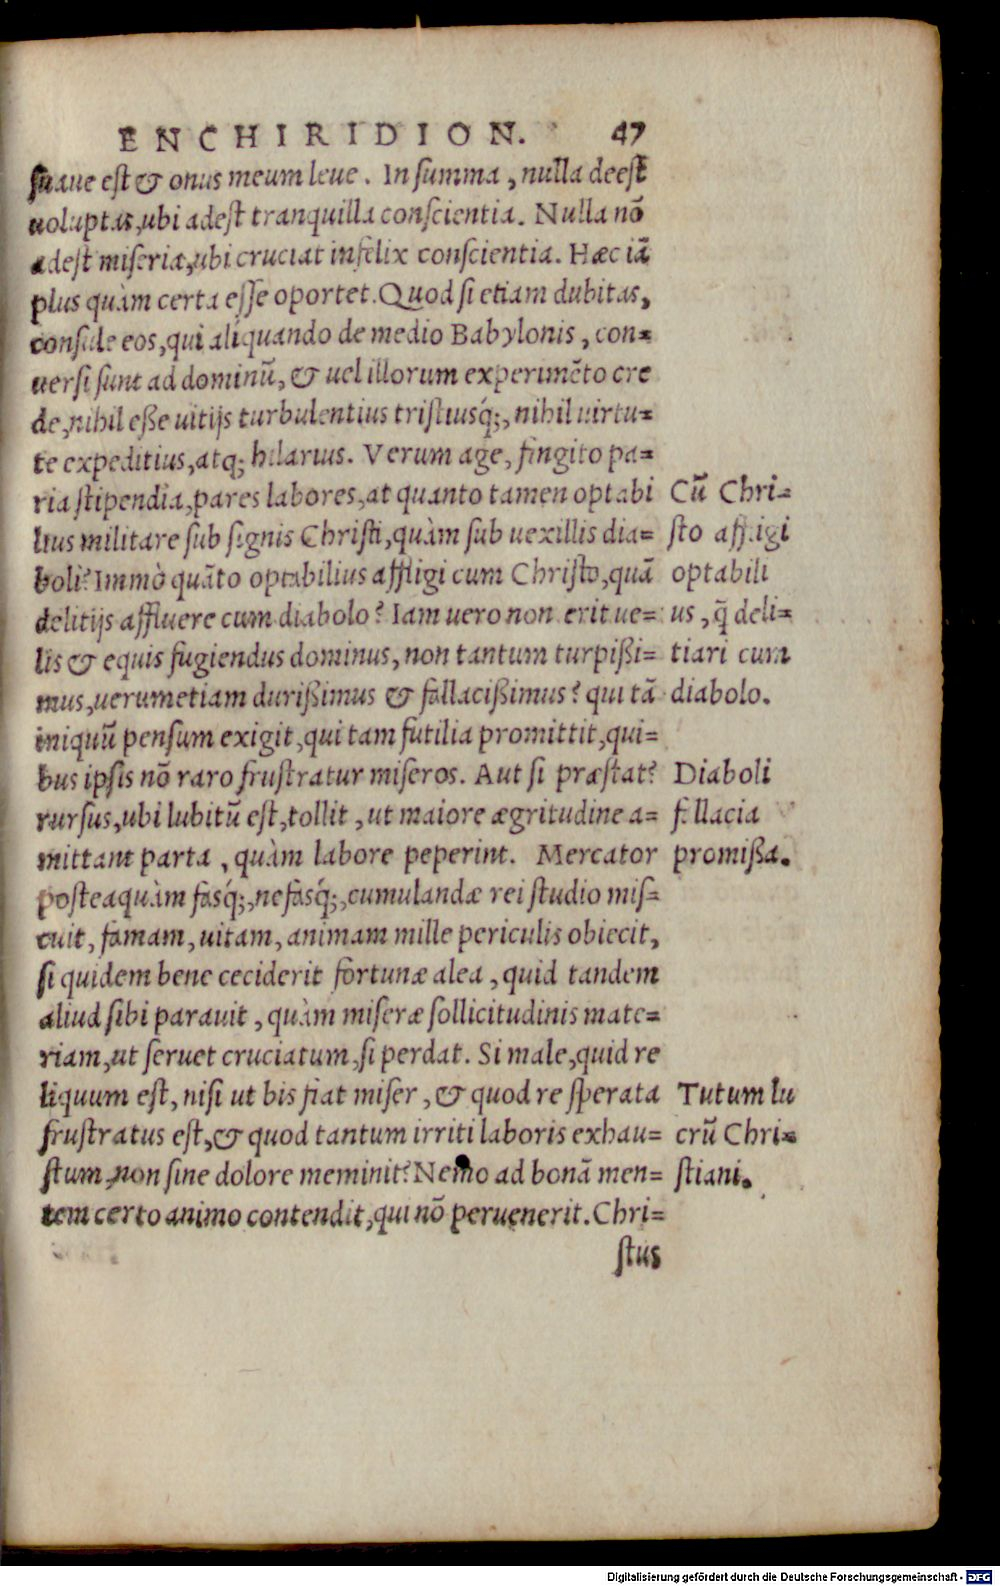 ENCHIRIDION. 47
suaue est & onus meum leue. In summa, nulla deest
uoluptas, ubi adest tranquilla conscientia. Nulla nō
adest miseria, ubi cruciat infelix conscientia. Hæc iā
plus quàm certa esse oportet. Quod si etiam dubitas,
consule eos, qui aliquando de medio Babylonis, con=
uersi sunt ad dominū, & uel illorum experimēto cre
de, nihil eße uitijs turbulentius tristiusq́;, nihil uirtu=
te expeditius, atq; hilarius. Verum age, fingito pa=
ria stipendia, pares labores, at quanto tamen optabi
lius militare sub signis Christi, quàm sub uexillis dia=
boli? Immò quāto optabilius affligi cum Christo, quā
delitijs affluere cum diabolo? Iam uero non erit ue=
lis & equis fugiendus dominus, non tantum turpißi=
mus, uerumetiam durißimus & fallacißimus? qui tā
iniquū pensum exigit, qui tam futilia promittit, qui=
bus ipsis nō raro frustratur miseros. Aut si præstat?
rursus, ubi lubitū est, tollit, ut maiore ægritudine a=
mittant parta, quàm labore peperint. Mercator
posteaquàm fasq́;, nefasq́;, cumulandæ rei studio mis=
cuit, famam, uitam, animam mille periculis obiecit,
si quidem bene ceciderit fortunæ alea, quid tandem
aliud sibi parauit, quàm miseræ sollicitudinis mate=
riam, ut seruet cruciatum, si perdat. Si male, quid re
liquum est, nisi ut bis fiat miser, & quod re sperata
frustratus est, & quod tantum irriti laboris exhau=
stum, non sine dolore meminit? Nemo ad bonā men=
tem certo animo contendit, qui nō peruenerit. Chri=
stus
Cū Chri=
sto affligi
optabili
us, q̄ deli=
tiari cum
diabolo.
Diaboli
fallacia
promißa.
Tutum lu
crū Chri=
stiani.
Digitalisierung gefördert durch die Deutsche Forschungsgemeinschaft - DFG